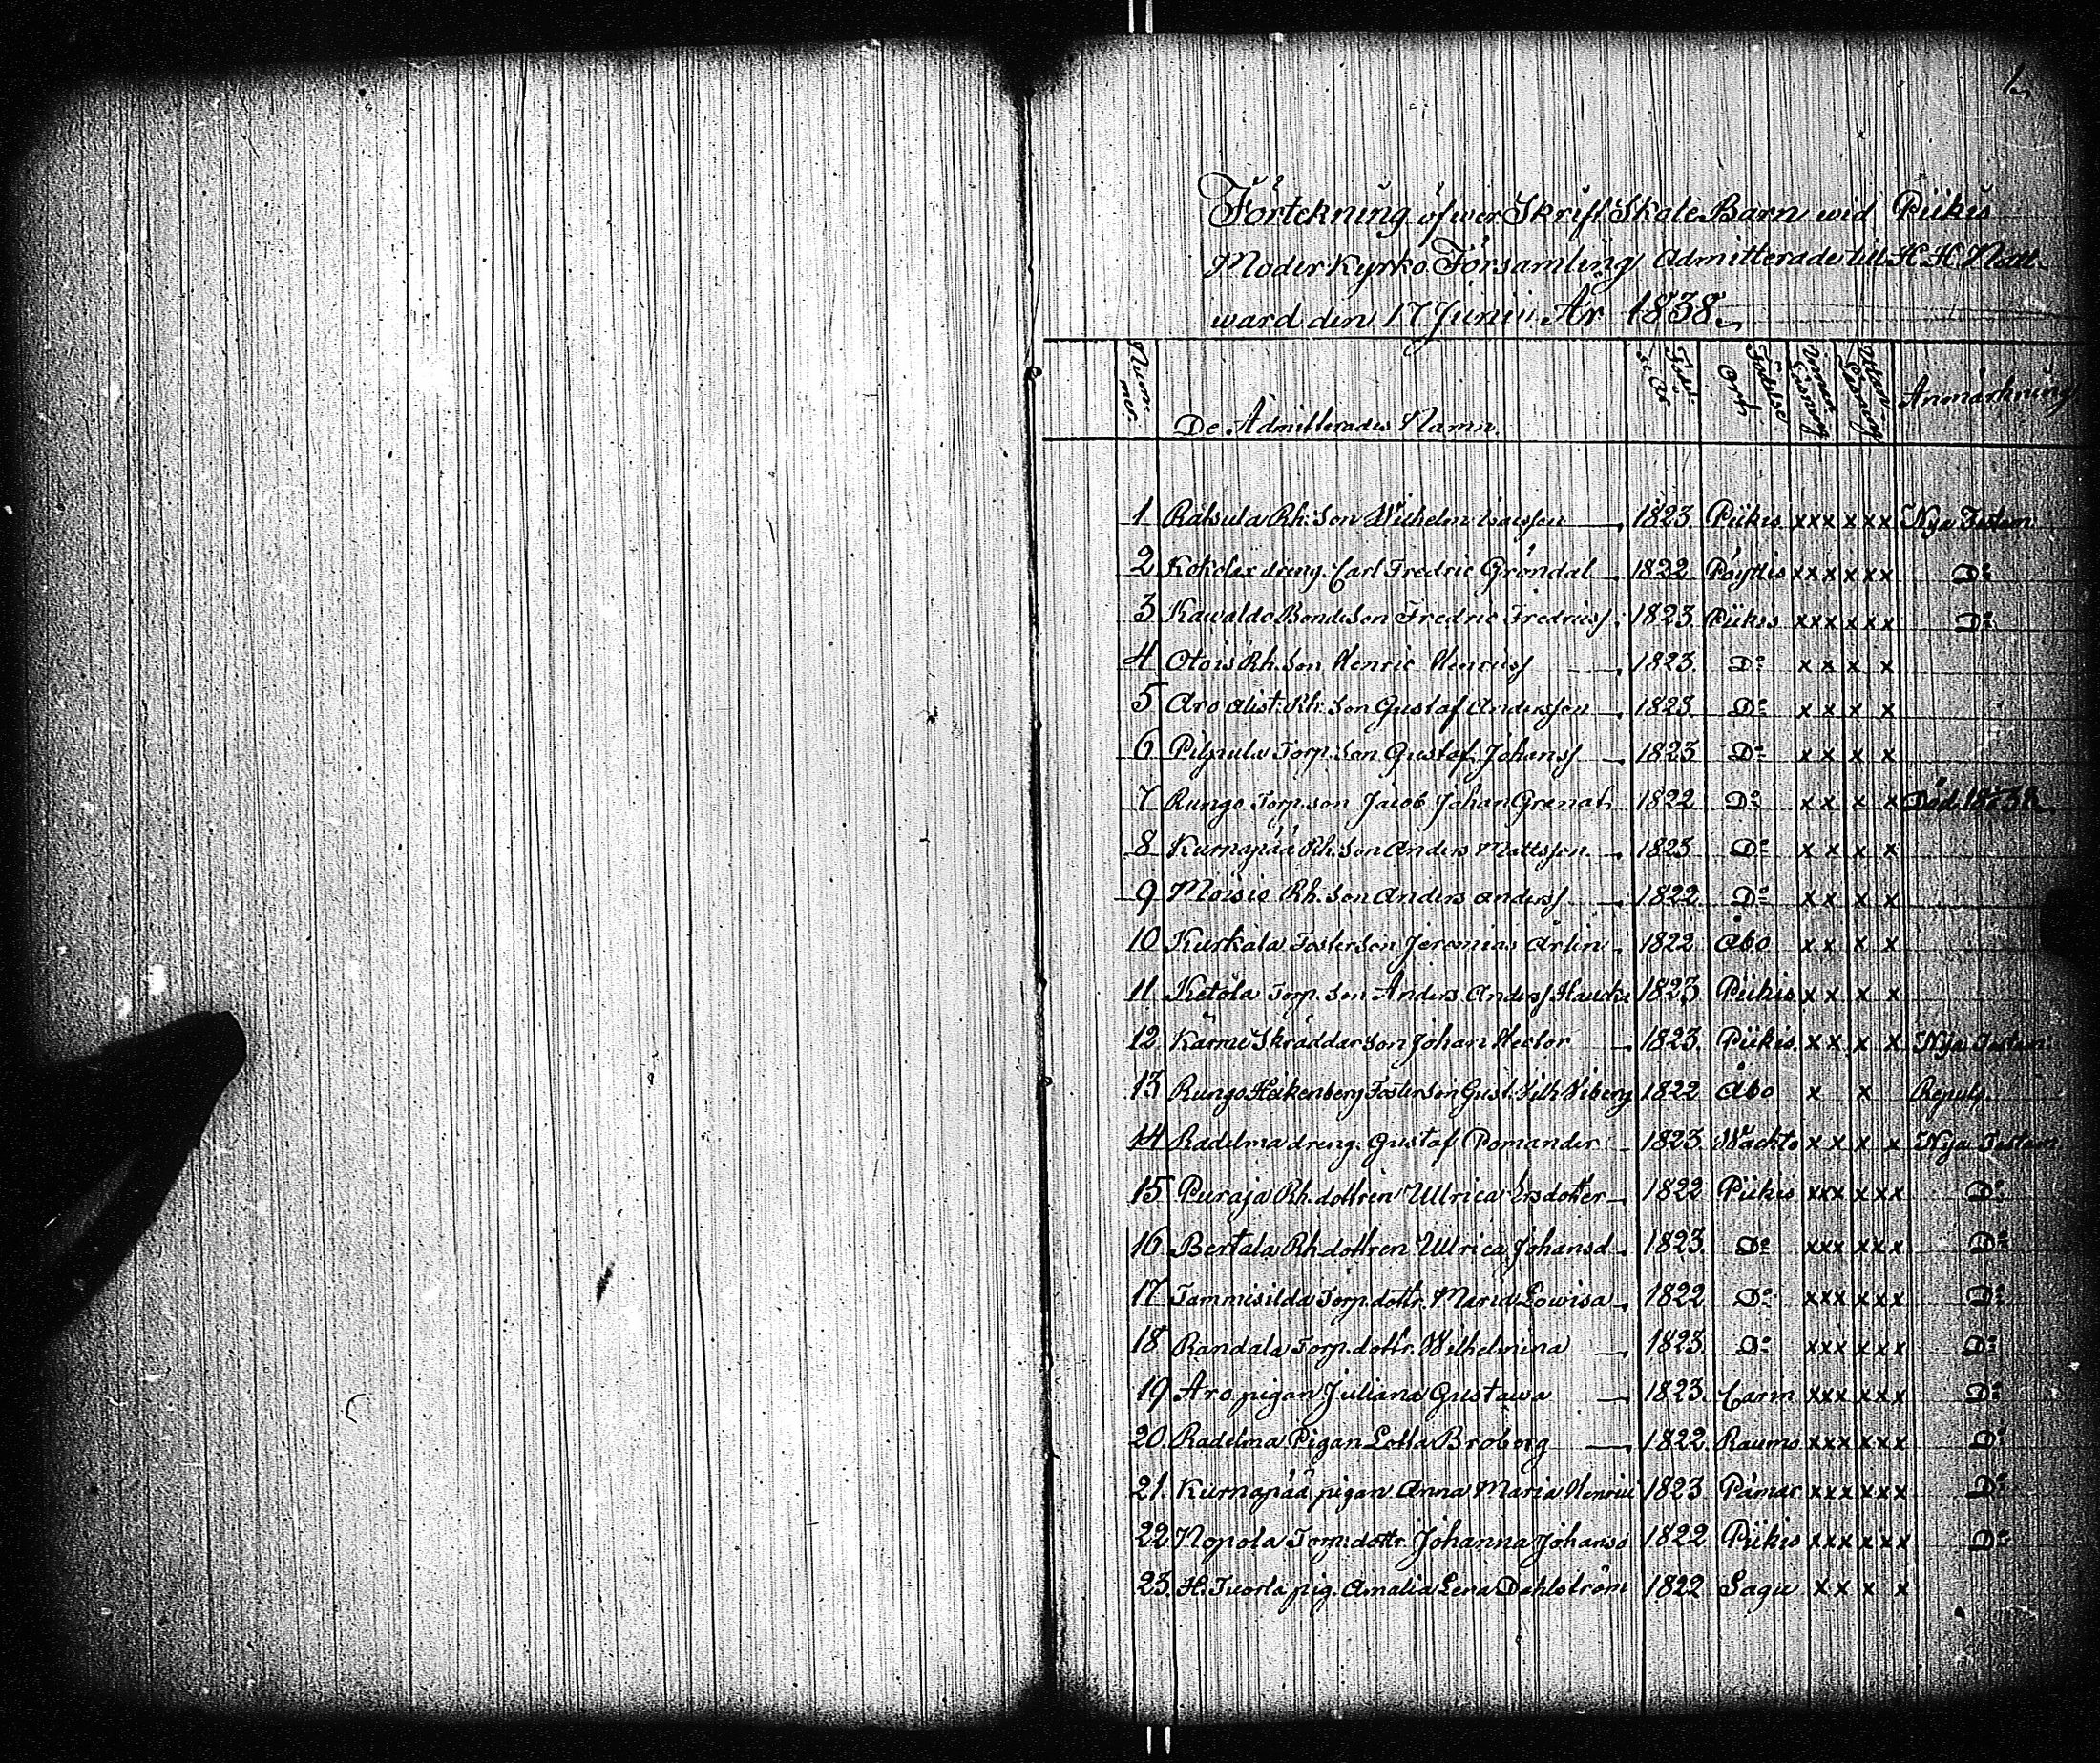 1.
Förtekning öfwer Skrift Skole Barn wid Piikis
Moderkyrko Församling Admitterade till H. H. Natt-
ward den 17 Junii År 1838.
Num-mer. De Admitterades Namn. Födel-se År Födelse Ort Innan Läsning Utan Läsning Anmärkning
1 Rh. Son Wilhelm 1823 Piikis xxx xxx Nya Testam
2 dreng. Carl Fredric Gröndal 1822 Pöyttis xxx xxx Do
3 BondeSon Fredric Fredricss. 1823 Piikis xxx xxx Do
4 Otois Rh. Son Henric Henricss 1823 Do xx xx
5 Aro Rh. Son Gustaf Andersson 1823 Do xx xx
6 Torp. Son Gustaf Johanss 1823 Do xx xx
7 Rungo Torp. son Jacob Johan Granat 1822 Do xx xx Död
8 Kurnapää Rh. Son Anders Mattsson 1823 Do xx xx
9 Moisio Rh. Son Anders Anderss 1822 Do xx xx
10 Kurkala FosterSon Jeremias Arlin 1822 Åbo xx xx
11 Ketola Torp. Son Anders Anderss 1823 Piikis xx xx
12 Skräddar Son Johan Hector 1823 Piikis xx xx Nya Testam
13 Rungo FosterSon Gust. Wiberg 1822 Åbo x x
14 Radelma dreng. Gustaf Pomander 1823 xx xx Nya Testam
15 Puraja Rh. dottren Ullrica Ersdotter 1822 Piikis xxx xxx Do
16 Bertala Rh. dottren Ullrica Johansd. 1823 Do xxx xxx Do
17 Tammisilda Torp. dottr. Maria Lowisa 1822 Do xxx xxx Do
18 Randala Torp. dottr. Wilhelmina 1823 Do xxx xxx Do
19 Aro pigan Juliana Gustawa 1823 xxx xxx Do
20. Radelma Pigan Lotta Broberg 1822 Raumo xxx xxx Do
21. Kurnapää pigan Anna Maria 1823 Pämar xxx xxx Do
22 Nopola Torp. dottr Johanna Johansd 1822 Piikis xxx xxx Do
23. H. Tuorla pig. Amalia Lena Dahlström 1822 Sagu xx xx